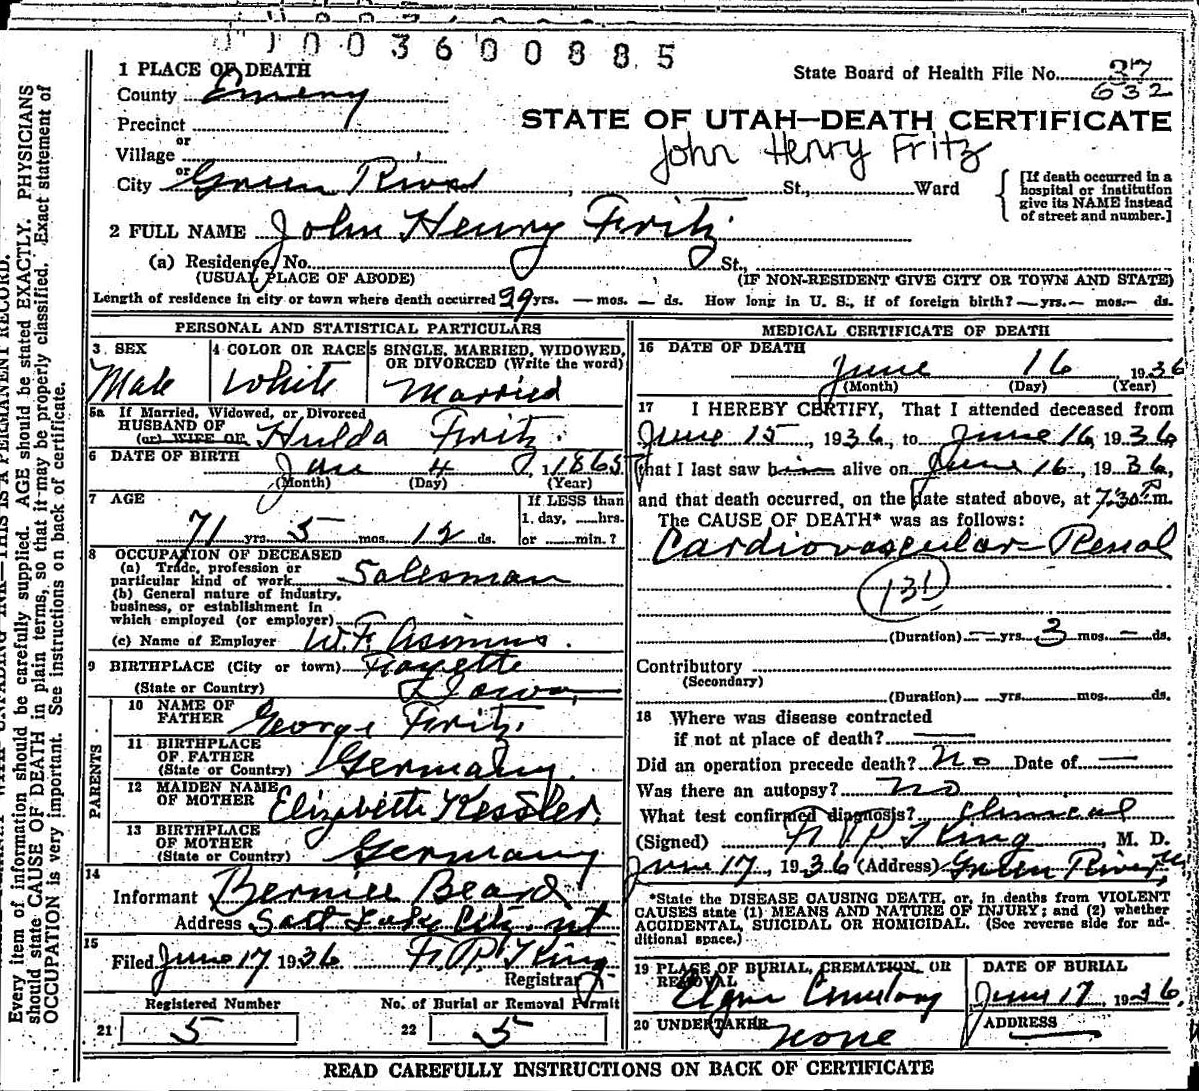 0 1 0 0 3 6 0 0 8 8 5
1 PLACE OF DEATH
State Board of Health File No. 37
632
County Emery
STATE OF UTAH—DEATH CERTIFICATE
Precinct
John Henry Fritz
or
Village
or
City Green River St., Ward
[If death occurred in a hospital or institution give its NAME instead of street and number.]
2 FULL NAME John Henry Fritz
(a) Residence, No. St.,
(USUAL PLACE OF ABODE) (IF NON-RESIDENT GIVE CITY OR TOWN AND STATE)
Length of residence in city or town where death occurred 39 yrs. — mos. — ds. How long in U. S., if of foreign birth? — yrs. — mos. — ds.
PERSONAL AND STATISTICAL PARTICULARS
3 SEX
Male
4 COLOR OR RACE
White
5 SINGLE, MARRIED, WIDOWED,
OR DIVORCED (Write the word)
Married
5a If Married, Widowed, or Divorced
HUSBAND OF
(or) WIFE OF Hulda Fritz.
6 DATE OF BIRTH Jan 4 1865
(Month) (Day) (Year)
7 AGE
71 yrs 5 mos. 12 ds.
If LESS than
1 day, ......hrs.
or ......min.?
8 OCCUPATION OF DECEASED
(a) Trade, profession or
particular kind of work Salesman
(b) General nature of industry,
business, or establishment in
which employed (or employer)
(c) Name of Employer W.F. Asimus.
9 BIRTHPLACE (City or town) Fayette
(State or Country) Iowa
PARENTS
10 NAME OF
FATHER George Fritz.
11 BIRTHPLACE
OF FATHER
(State or Country) Germany.
12 MAIDEN NAME
OF MOTHER Elizabeth Kessler.
13 BIRTHPLACE
OF MOTHER
(State or Country) Germany
14
Informant Bernice Beard
Address Salt Lake City, ut
15
Filed June 17 1936 F. P. King
Registrar
Registered Number
21 5
No. of Burial or Removal Permit
22 5
MEDICAL CERTIFICATE OF DEATH
16 DATE OF DEATH
June 16 1936
(Month) (Day) (Year)
17 I HEREBY CERTIFY, That I attended deceased from
June 15, 1936, to June 16, 1936
that I last saw him alive on June 16, 1936,
and that death occurred, on the date stated above, at 7:30 P.m.
The CAUSE OF DEATH* was as follows:
Cardiovascular Renal
131
(Duration) — yrs. 3 mos. — ds.
Contributory
(Secondary)
(Duration) yrs. mos. ds.
18 Where was disease contracted
if not at place of death? —
Did an operation precede death? No Date of —
Was there an autopsy? no
What test confirmed diagnosis? Clinical
(Signed) King, M. D.
June 17, 1936 (Address) Green River,
*State the DISEASE CAUSING DEATH, or, in deaths from VIOLENT
CAUSES state (1) MEANS AND NATURE OF INJURY; and (2) whether
ACCIDENTAL, SUICIDAL OR HOMICIDAL. (See reverse side for ad-
ditional space.)
19 PLACE OF BURIAL, CREMATION, OR
REMOVAL
Elgin Cemetery
DATE OF BURIAL
June 17 1936
20 UNDERTAKER none
ADDRESS
READ CAREFULLY INSTRUCTIONS ON BACK OF CERTIFICATE
Every item of information should be carefully supplied. AGE should be stated EXACTLY. PHYSICIANS
should state CAUSE OF DEATH in plain terms, so that it may be properly classified. Exact statement of
OCCUPATION is very important. See instructions on back of certificate.